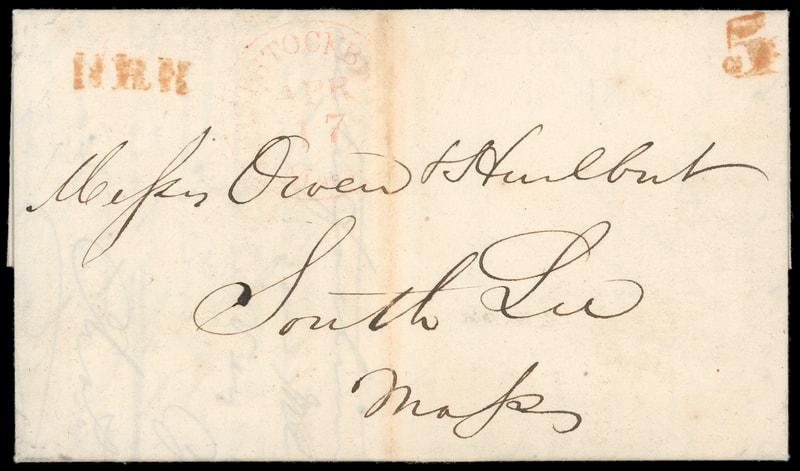 STOCKB
APR
7
5
Messrs Owen & Hurlbut
South Lee
Mass